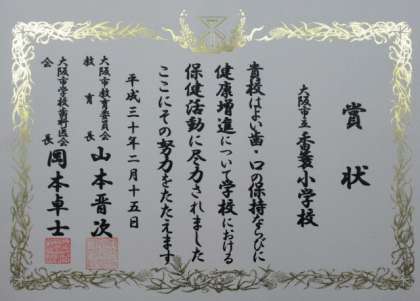 賞状
大阪市立 香簑小学校
貴校はよい歯・口の保持ならびに
健康増進について学校における
保健活動に尽力されました
ここにその努力をたたえます
平成三十年二月十五日
大阪市教育委員会
教育長 山本晋次
大阪市学校歯科医会
会長 岡本卓士